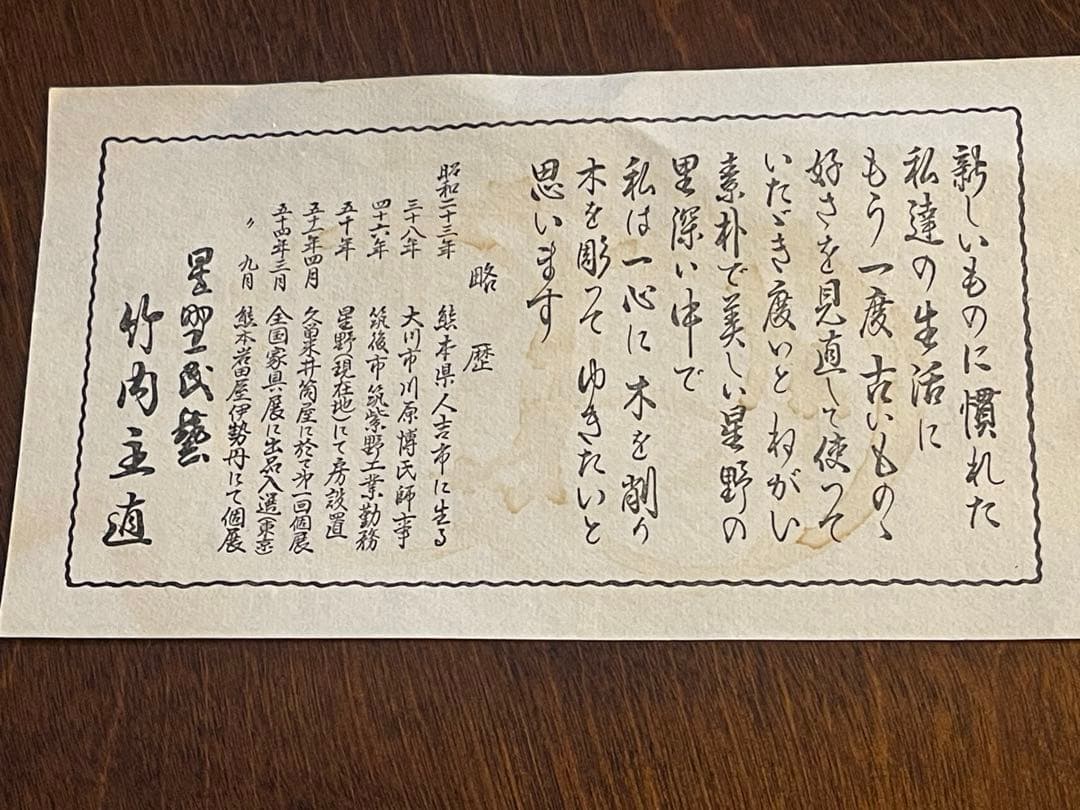 新しいものに慣れた
私達の生活に
もう一度古いものゝ
好さを見直して使って
いたゞき度いとねがい
素朴で美しい星野の
里深い中で
私は一心に木を削り
木を彫って ゆきたいと
思います
略 歴
昭和二十三年 熊本県人吉市に生る
三十八年 大川市川原博氏師事
四十六年 筑後市筑紫野工業勤務
五十年 星野(現在地)にて房設置
五十一年四月 久留米井筒屋に於て第一回個展
五十四年三月 全国家具展に出品入選(東京)
〃 九月 熊本岩田屋伊勢丹にて個展
星野民藝
竹内主直